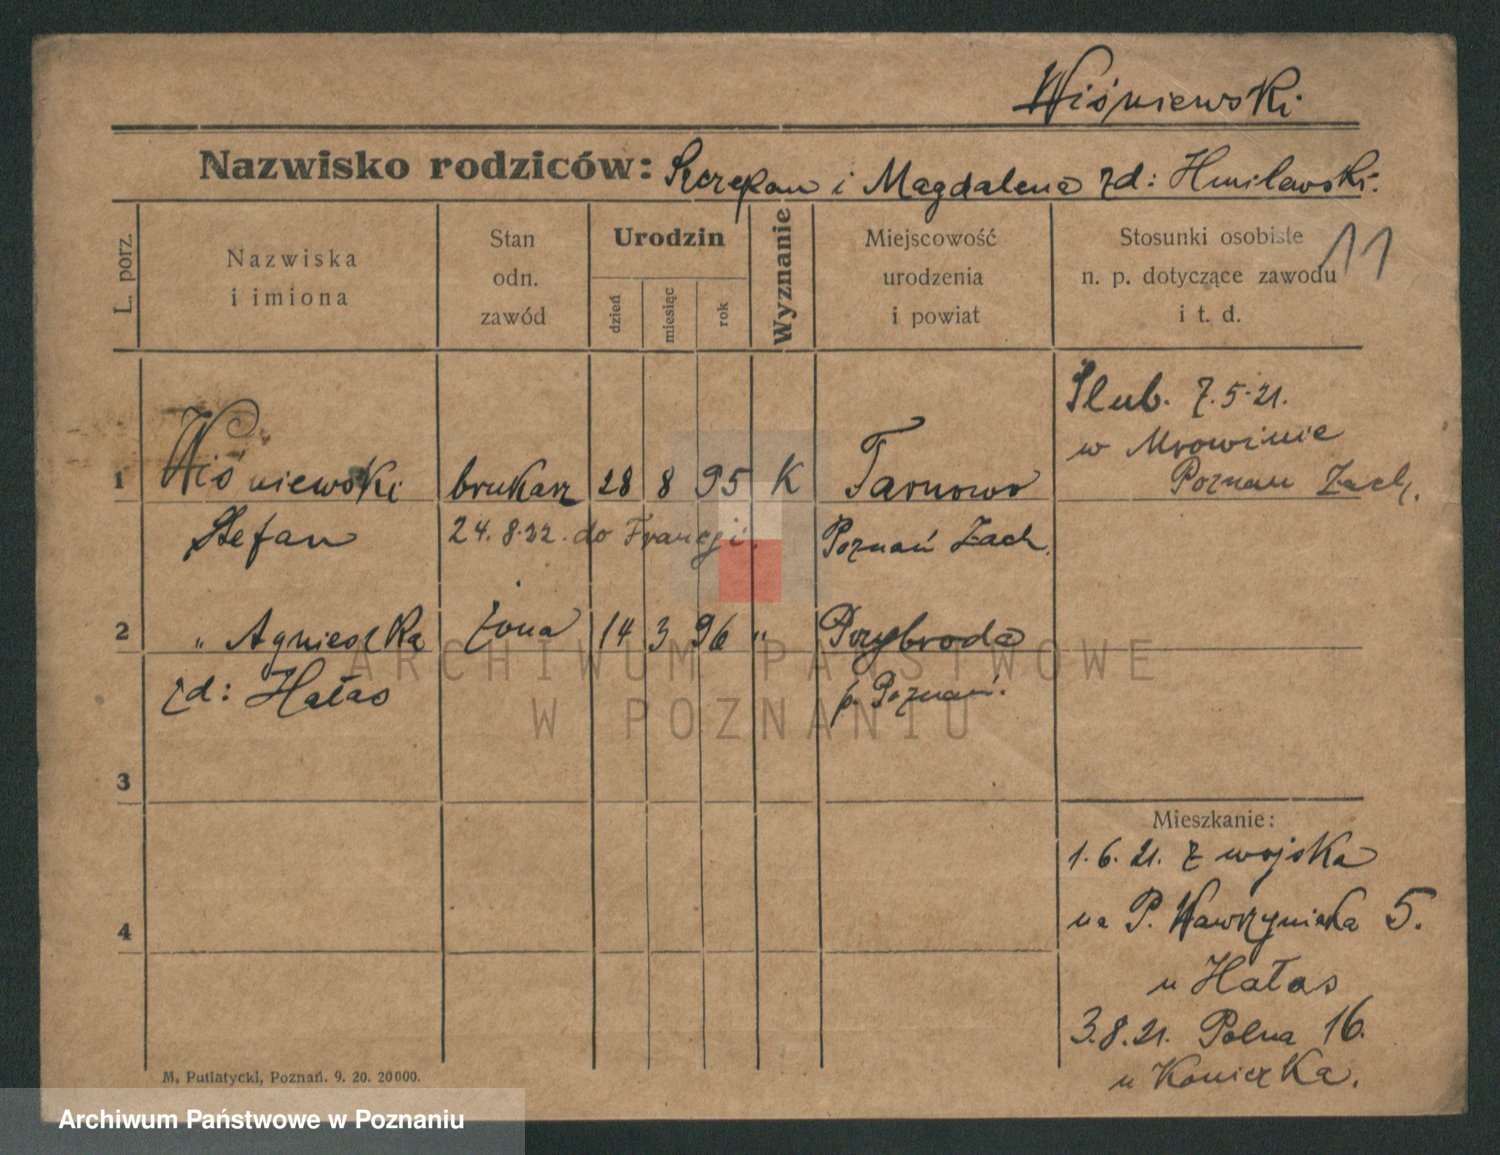 Wiśniewski
Nazwisko rodziców: Szczepan i Magdalena zd: Hmilewski.
11
L. porz.
Nazwiska
i imiona
Stan
odn.
zawód
Urodzin
dzień
miesiąc
rok
Wyznanie
Miejscowość
urodzenia
i powiat
Stosunki osobiste
n. p. dotyczące zawodu
i t. d.
Ślub. 7.5.21.
w Mrowinie
Poznań Zach.
1 Wiśniewski brukarz 28 8 95 K Tarnowo
Stefan 24.8.22. do Francji. Poznań Zach.
2 " Agnieszka żona 14 3 96 " Przybroda
zd: Hałas p. Poznań.
3
Mieszkanie:
1.6.21. z wojska
na P. Wawrzyniaka 5.
4
u Hałas
3.8.21. Polna 16.
u Konieczka.
M. Putiatycki, Poznań. 9. 20. 20000.
ARCHIWUM PAŃSTWOWE
W POZNANIU
Archiwum Państwowe w Poznaniu